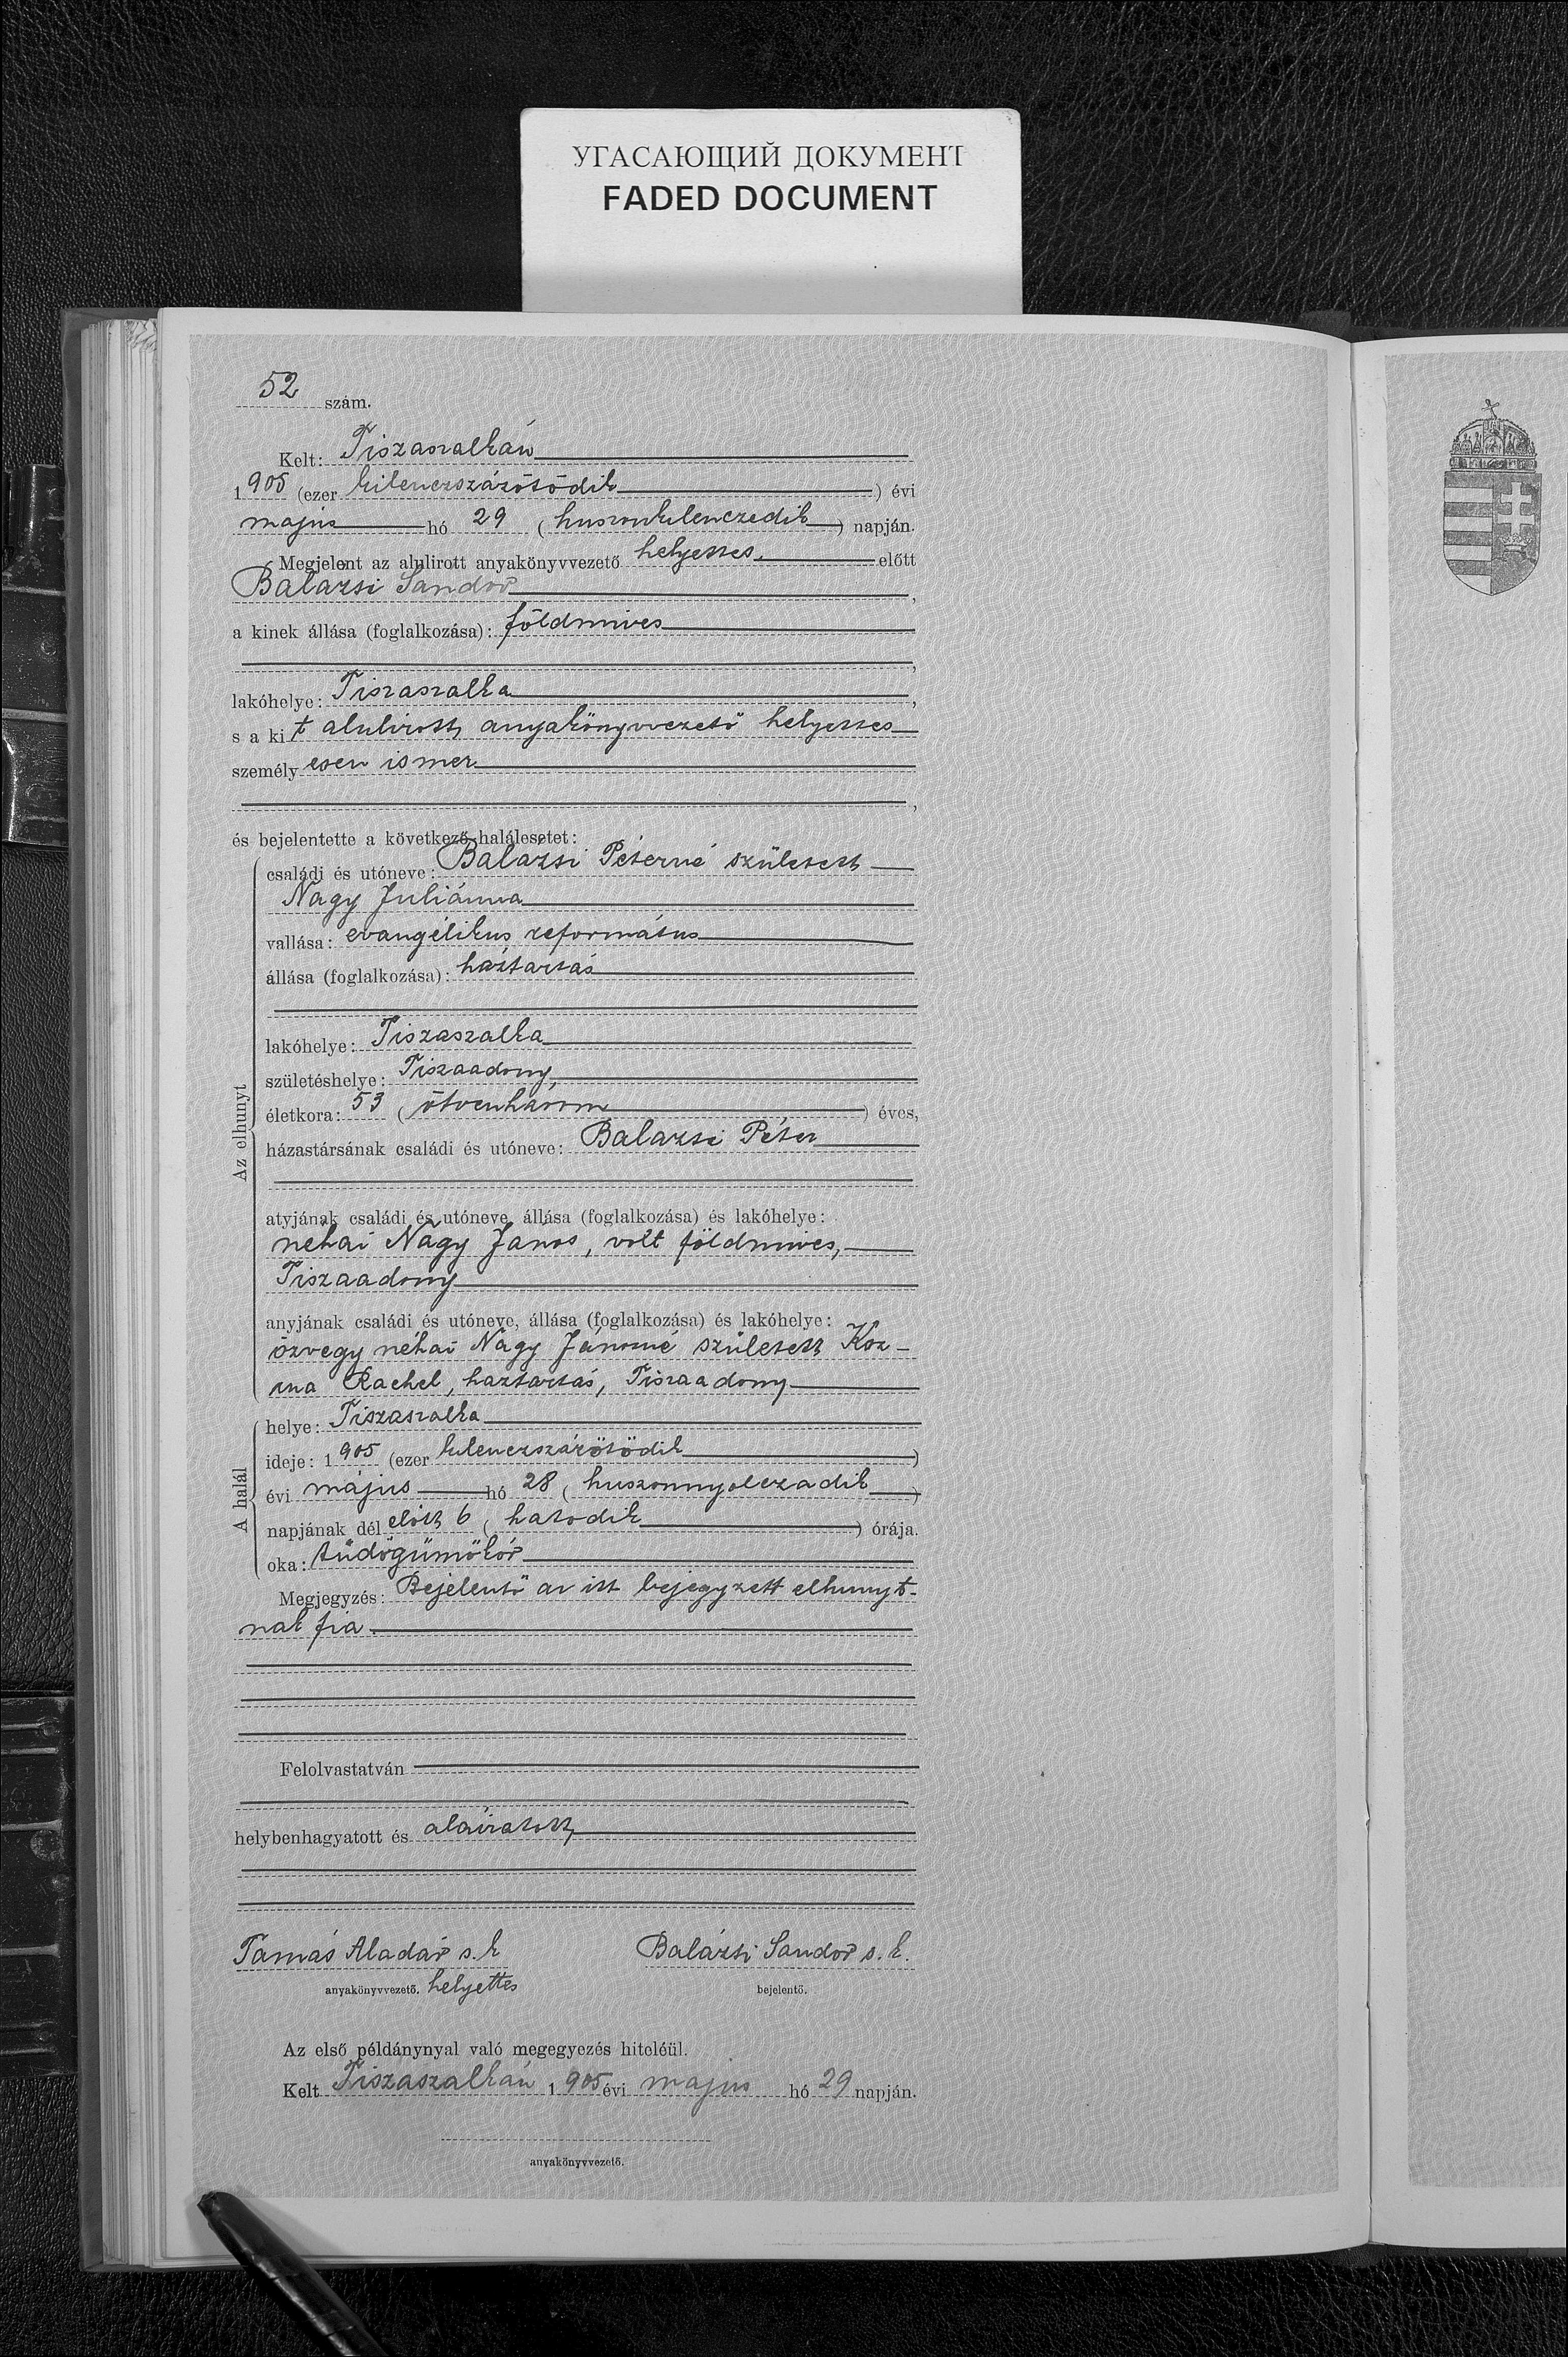 УГАСАЮЩИЙ ДОКУМЕНТ
FADED DOCUMENT
52 szám.
Kelt: Tiszaszalkán
1905 (ezer kilenczszázötödik) évi
május hó 29 (huszonkilenczedik) napján.
Megjelent az alulirott anyakönyvvezető helyettes előtt
Balázsi Sandor,
a kinek állása (foglalkozása): földmives
,
lakóhelye: Tiszaszalka,
s a kit alulirott anyakönyvvezető helyettes
személyesen ismer
,
és bejelentette a következő halálesetet:
Az elhunyt
családi és utóneve: Balázsi Péterné született
Nagy Juliánna
vallása: evangélikus református
állása (foglalkozása): háztartás
lakóhelye: Tiszaszalka
születéshelye: Tiszaadony
életkora: 53 (ötvenhárom) éves,
házastársának családi és utóneve: Balazsi Péter
atyjának családi és utóneve, állása (foglalkozása) és lakóhelye:
néhai Nagy János, volt földmives,
Tiszaadony
anyjának családi és utóneve, állása (foglalkozása) és lakóhelye:
özvegy néhai Nagy Jánosné született Koz-
ma Rachel, háztartás, Tiszaadony
A halál
helye: Tiszaszalka
ideje: 1905 (ezer kilenczszázötödik)
évi május hó 28 (huszonnyolczadik)
napjának dél előtt 6 (hatodik) órája.
oka: tüdőgümőkór
Megjegyzés: Bejelentő az itt bejegyzett elhunyt-
nak fia.
Felolvastatván
helybenhagyatott és aláíratott
Tamás Aladár s. k Balázsi Sandor s. k.
anyakönyvvezető. helyettes bejelentő.
Az első példánynyal való megegyezés hiteléül.
Kelt Tiszaszalkán 1905 évi május hó 29 napján.
anyakönyvvezető.